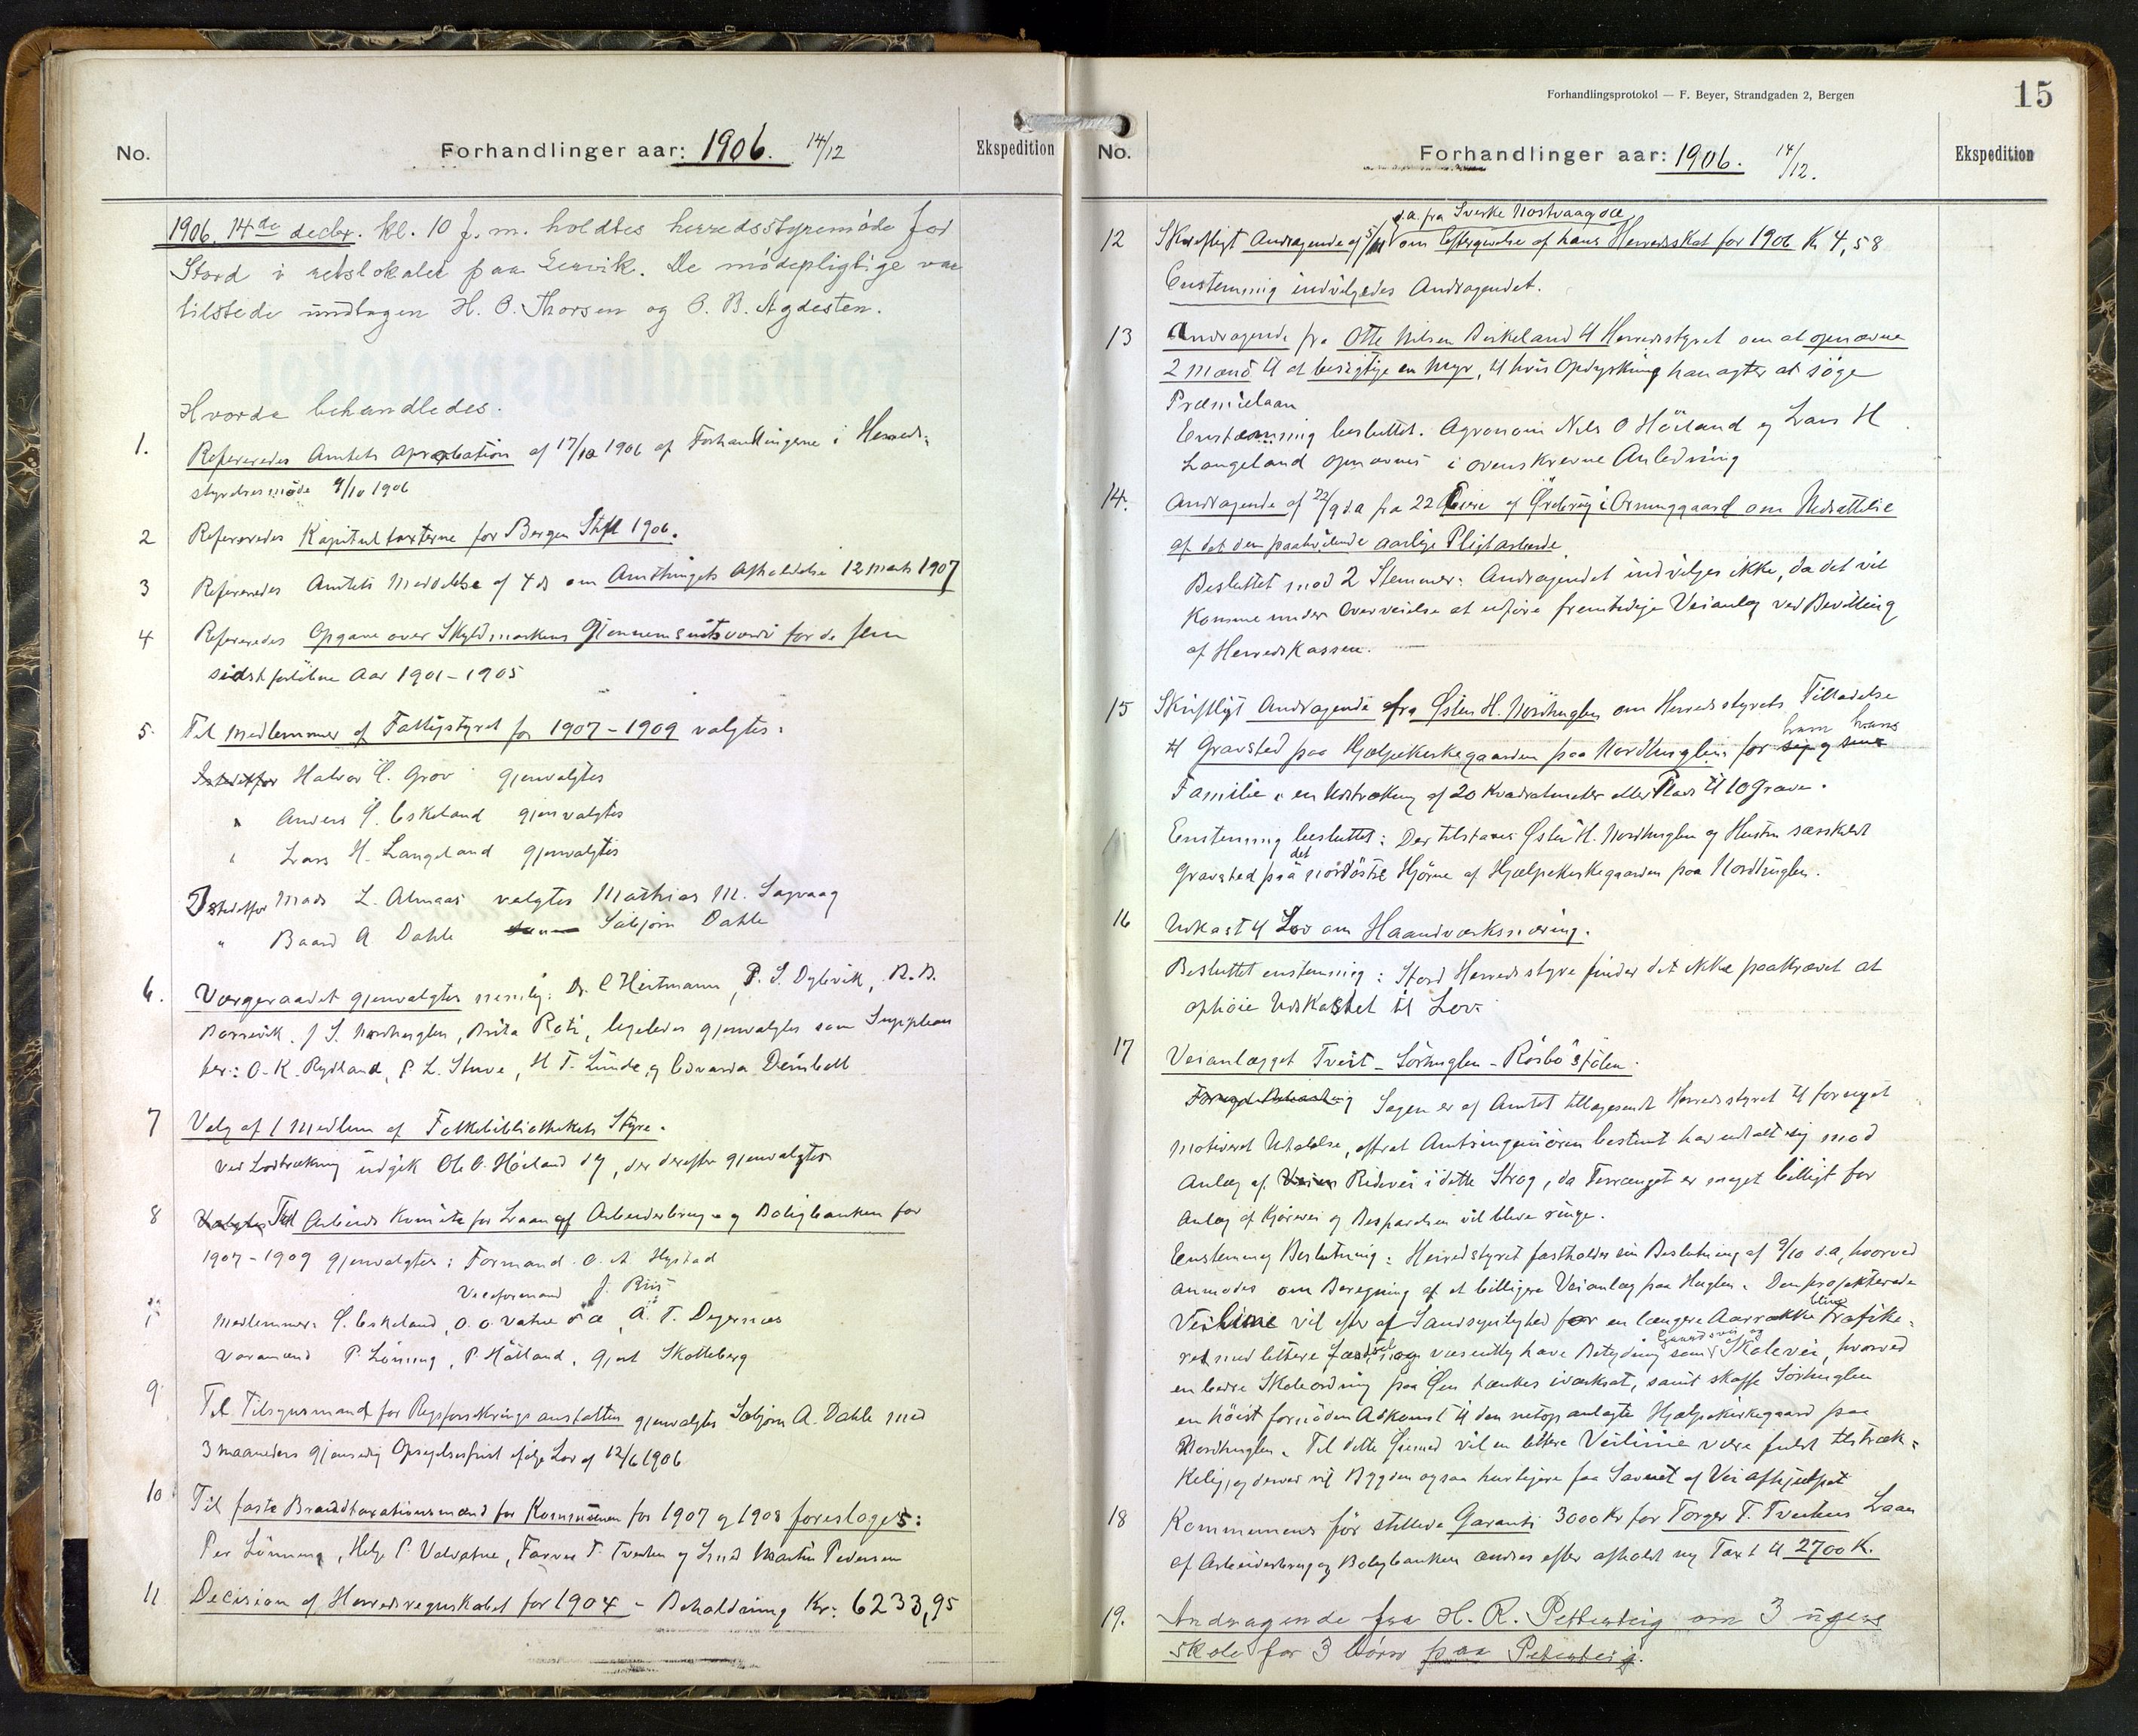 No.
Forhandlinger aar: 1906. 14/12
Ekspedition
1906. 14de decbr. kl. 10 f. m. holdtes herredsstyremöde for
Stord i retslokalet paa Leervik. De mödepligtige var
tilstede undtagen H. O. Thorsen og O. B. Agdesten.
Hvorda behandledes.
1. Refereredes Amtets Aprobation af 17/10 1906 af Forhandlingerne i Herreds-
styrelsesmöde 9/10 1906
2 Refereredes Kapitultaxterne for Bergen Stift 1906.
3 Refereredes Amtets Meddelelse af 4 ds om Amthingets Afholdelse 12 marts 1907
4 Refereredes Opgave over Skyldmarkens Gjennemsnitsværdi for de fem
sidst forløbne Aar 1901-1905
5. Til medlemmer af Fattigstyret for 1907-1909 valgtes:
Istedetfor Halvor Grov gjenvalgtes
" Anders Eskeland gjenvalgtes
" Lars H. Langeland gjenvalgtes
Istedetfor Mads L. Almaas valgtes Mathias M. Sagvaag
" Baard A Dahle Säbjörn Dahle
6. Værgeraadet gjenvalgtes nemlig: Dr. C Heitmann, P. S. Dybvik, B. B.
J. S. Nordhuglen, Brita Roti, ligeledes gjenvalgtes som Supplean
ter: O. K. Rydland, P L. Stuve, H T. Lunde, og Edvarda Deinboll
7 Valg af 1 Medlem af Folkebibliothekets Styre.
Ved Lodtrækning udgik Ole O. Höiland d y, der derefter gjenvalgtes
8 Valgtes Til Arbeids Komite for Laan af Arbeiderbrug og Boligbanken for
1907-1909 gjenvalgtes: Formand O. A Hystad
Viceformand J. Riis
Medlemmer: Eskeland, O. O. Vatne A. T. Digernæs
Varamænd P. Lönning, P. Hätland, Gjert Skotteberg
9. Til Tilsynsmand for Rigsforsikringsanstalten gjenvalgtes Säbjörn A. Dahle med
3 maaneders gjensidig Opsigelsesfrist ifølge Lov af 12/6 1906
10 Til faste Brandtaxationsmænd for Kommunen for 1907 og 1908 foresloges:
Per Lönning, Helge P. Valvatne, Farver T. Tveiten og Smed Martin Pedersen
11 Decision af Herredsregnskabet for 1904 - Beholdning Kr: 6233,95
Forhandlingsprotokol — F. Beyer, Strandgaden 2, Bergen
15
No.
Forhandlinger aar: 1906. 14/12.
Ekspedition
d.a. fra Sverke Nostvaag
12 Skriftligt Andragende af 5/11 om Eftergivelse af hans Herredsskat for 1906 Kr 4,58
Enstemmig indvilgedes Andragendet.
13 Andragende fra Otte Nilsen Birkeland til Herredsstyret om at opnævne
2 mænd til at besigtige en Myr, til hvis Opdyrkning han agter at söge
Præmielaan
Enstemmig besluttet. Agronom Nils O Höiland og Lars H
Langeland opnævnes i ovenskrevne Anledning
14. Andragende af 22/9 da fra 22 Eiere af Ørederög i Ornunggaard om Nedsættelse
af det dem paahvilende aarlige Pligtarbeide.
Besluttet mod 2 Stemmer: Andragendet indvilges ikke, da det vil
komme under Overveielse at udføre fremtidige Veianlæg ved Bevilling
af Herredskassen.
15 Skriftligt Andragende fra Östen H. Nordhuglen om Herredsstyrets Tilladelse
ham hans
til Gravsted paa Hjælpekirkegaarden paa Nordhuglen for sig og sine
Familie i en Udstrækning af 20 Kvadratmeter eller Plads til 10 Grave.
Enstemmig besluttet: Der tilstaaes Östen H. Nordhuglen og Hustru særskildt
det
Gravsted paa nordöstre Hjörne af Hjælpekirkegaarden paa Nordhuglen.
16 Udkast til Lov om Haandværksnæring.
Besluttet enstemmig: Stord Herredsstyre finder det ikke paakrævet at
ophöie Udkastet til Lov.
17 Veianlægget Tveit - Sörhuglen - Rösböstölen.
Fornyet Behandling Sagen er af Amtet tilbagesendt Herredsstyret til fornyet
motiveret Udtalelse, efterat Amtsingeniören bestemt har udtalt sig mod
Anlæg af Veien Ridevei i dette Strög, da Terrænget er meget billigt for
Anlæg af Kjörevei og Besparelsen vil blive ringe.
Enstemmig Beslutning: Herredsstyret fastholder sin Beslutning af 9/10 d.a, hvorved
anmodes om Beregning af et billigere Veianlæg paa Huglen. Den projekterede
blive
Veilinie vil efter al Sandsynlighed for en længere Aarrække trafike-
ret med lettere og væsentlig have Betydning som Skolevei, hvorved
en bedre Skoleordning paa Öen tænkes iværksat, samt skaffe Sörhuglen
en höist fornöden Adkomst til den netop anlagte Hjælpekirkegaard paa
Nordhuglen. Til dette Öiemed vil en lettere Veilinie være fuldt tilstræk-
kelig, og derved vil Bygden ogsaa hurtigere faa Savnet af Vei afhjulpet
18 Kommunens för stillede Garanti 3000 Kr for Torger T. Tveitens Laan
af Arbeiderbrug og Boligbanken ændres efter afholdt ny Taxt til 2700 K.
19. Andragende fra H. R. Petterteig om 3 ugers
skole for 3 börn paa Petterteig.